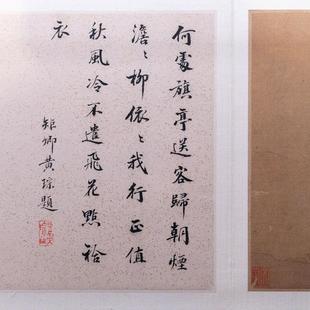 何處旗亭送客歸朝煙
澹〻柳依〻我行正值
秋風冷不遣飛花點袷
衣
矩卿黃琮題